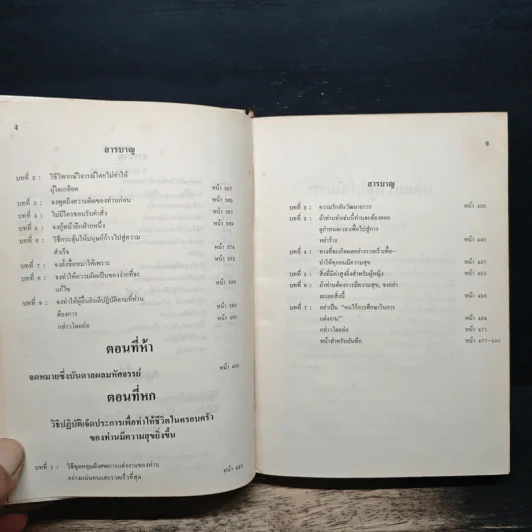 ง
สารบาญ
บทที่ 2 : วิธีวิพากษ์วิจารณ์โดยไม่ทำให้
ผู้ใดเกลียด หน้า 357
บทที่ 3 : จงพูดถึงความผิดของท่านก่อน หน้า
บทที่ 4 : ไม่มีใครชอบรับคำสั่ง หน้า
บทที่ 5 : จงกู้หน้าอีกฝ่ายหนึ่ง หน้า
บทที่ 6 : วิธีกระตุ้นให้มนุษย์ก้าวไปสู่ความ
สำเร็จ หน้า 374
บทที่ 7 : จงตั้งชื่อหมาให้เพราะ หน้า
บทที่ 8 : จงทำให้ความผิดเป็นของง่ายที่จะ
แก้ไข หน้า
บทที่ 9 : จงทำให้ผู้อื่นยินดีปฏิบัติตามที่ท่าน
ต้องการ หน้า
กล่าวโดยย่อ หน้า
ตอนที่ห้า
จดหมายซึ่งบันดาลผลมหัศจรรย์ หน้า
ตอนที่หก
วิธีปฏิบัติเจ็ดประการเพื่อทำให้ชีวิตในครอบครัว
ของท่านมีความสุขยิ่งขึ้น
บทที่ 1 : วิธีขุดหลุมฝังศพการแต่งงานของท่าน หน้า
อย่างแน่นอนและรวดเร็วที่สุด
สารบาญ
บทที่ 2 : ความรักกับวัฒนาถาวร หน้า
บทที่ 3 : ถ้าท่านทำเช่นนี้ท่านจะต้องคอย
ดูกำหนดเวลาเพื่อไปสู่การ
หย่าร้าง หน้า
บทที่ 4 : ทางที่จะเกิดผลอย่างรวดเร็วเพื่อ-
ทำให้ทุกคนมีความสุข หน้า
บทที่ 5 : สิ่งที่มีค่าสูงยิ่งสำหรับผู้หญิง หน้า
บทที่ 6 : ถ้าท่านต้องการมีความสุข, จงอย่า
ละเลยสิ่งนี้ หน้า
บทที่ 7 : อย่าเป็น "คนไร้การศึกษาในการ
แต่งงาน" หน้า 464
กล่าวโดยย่อ หน้า 471
หน้าสำหรับบันทึก หน้า 477-480